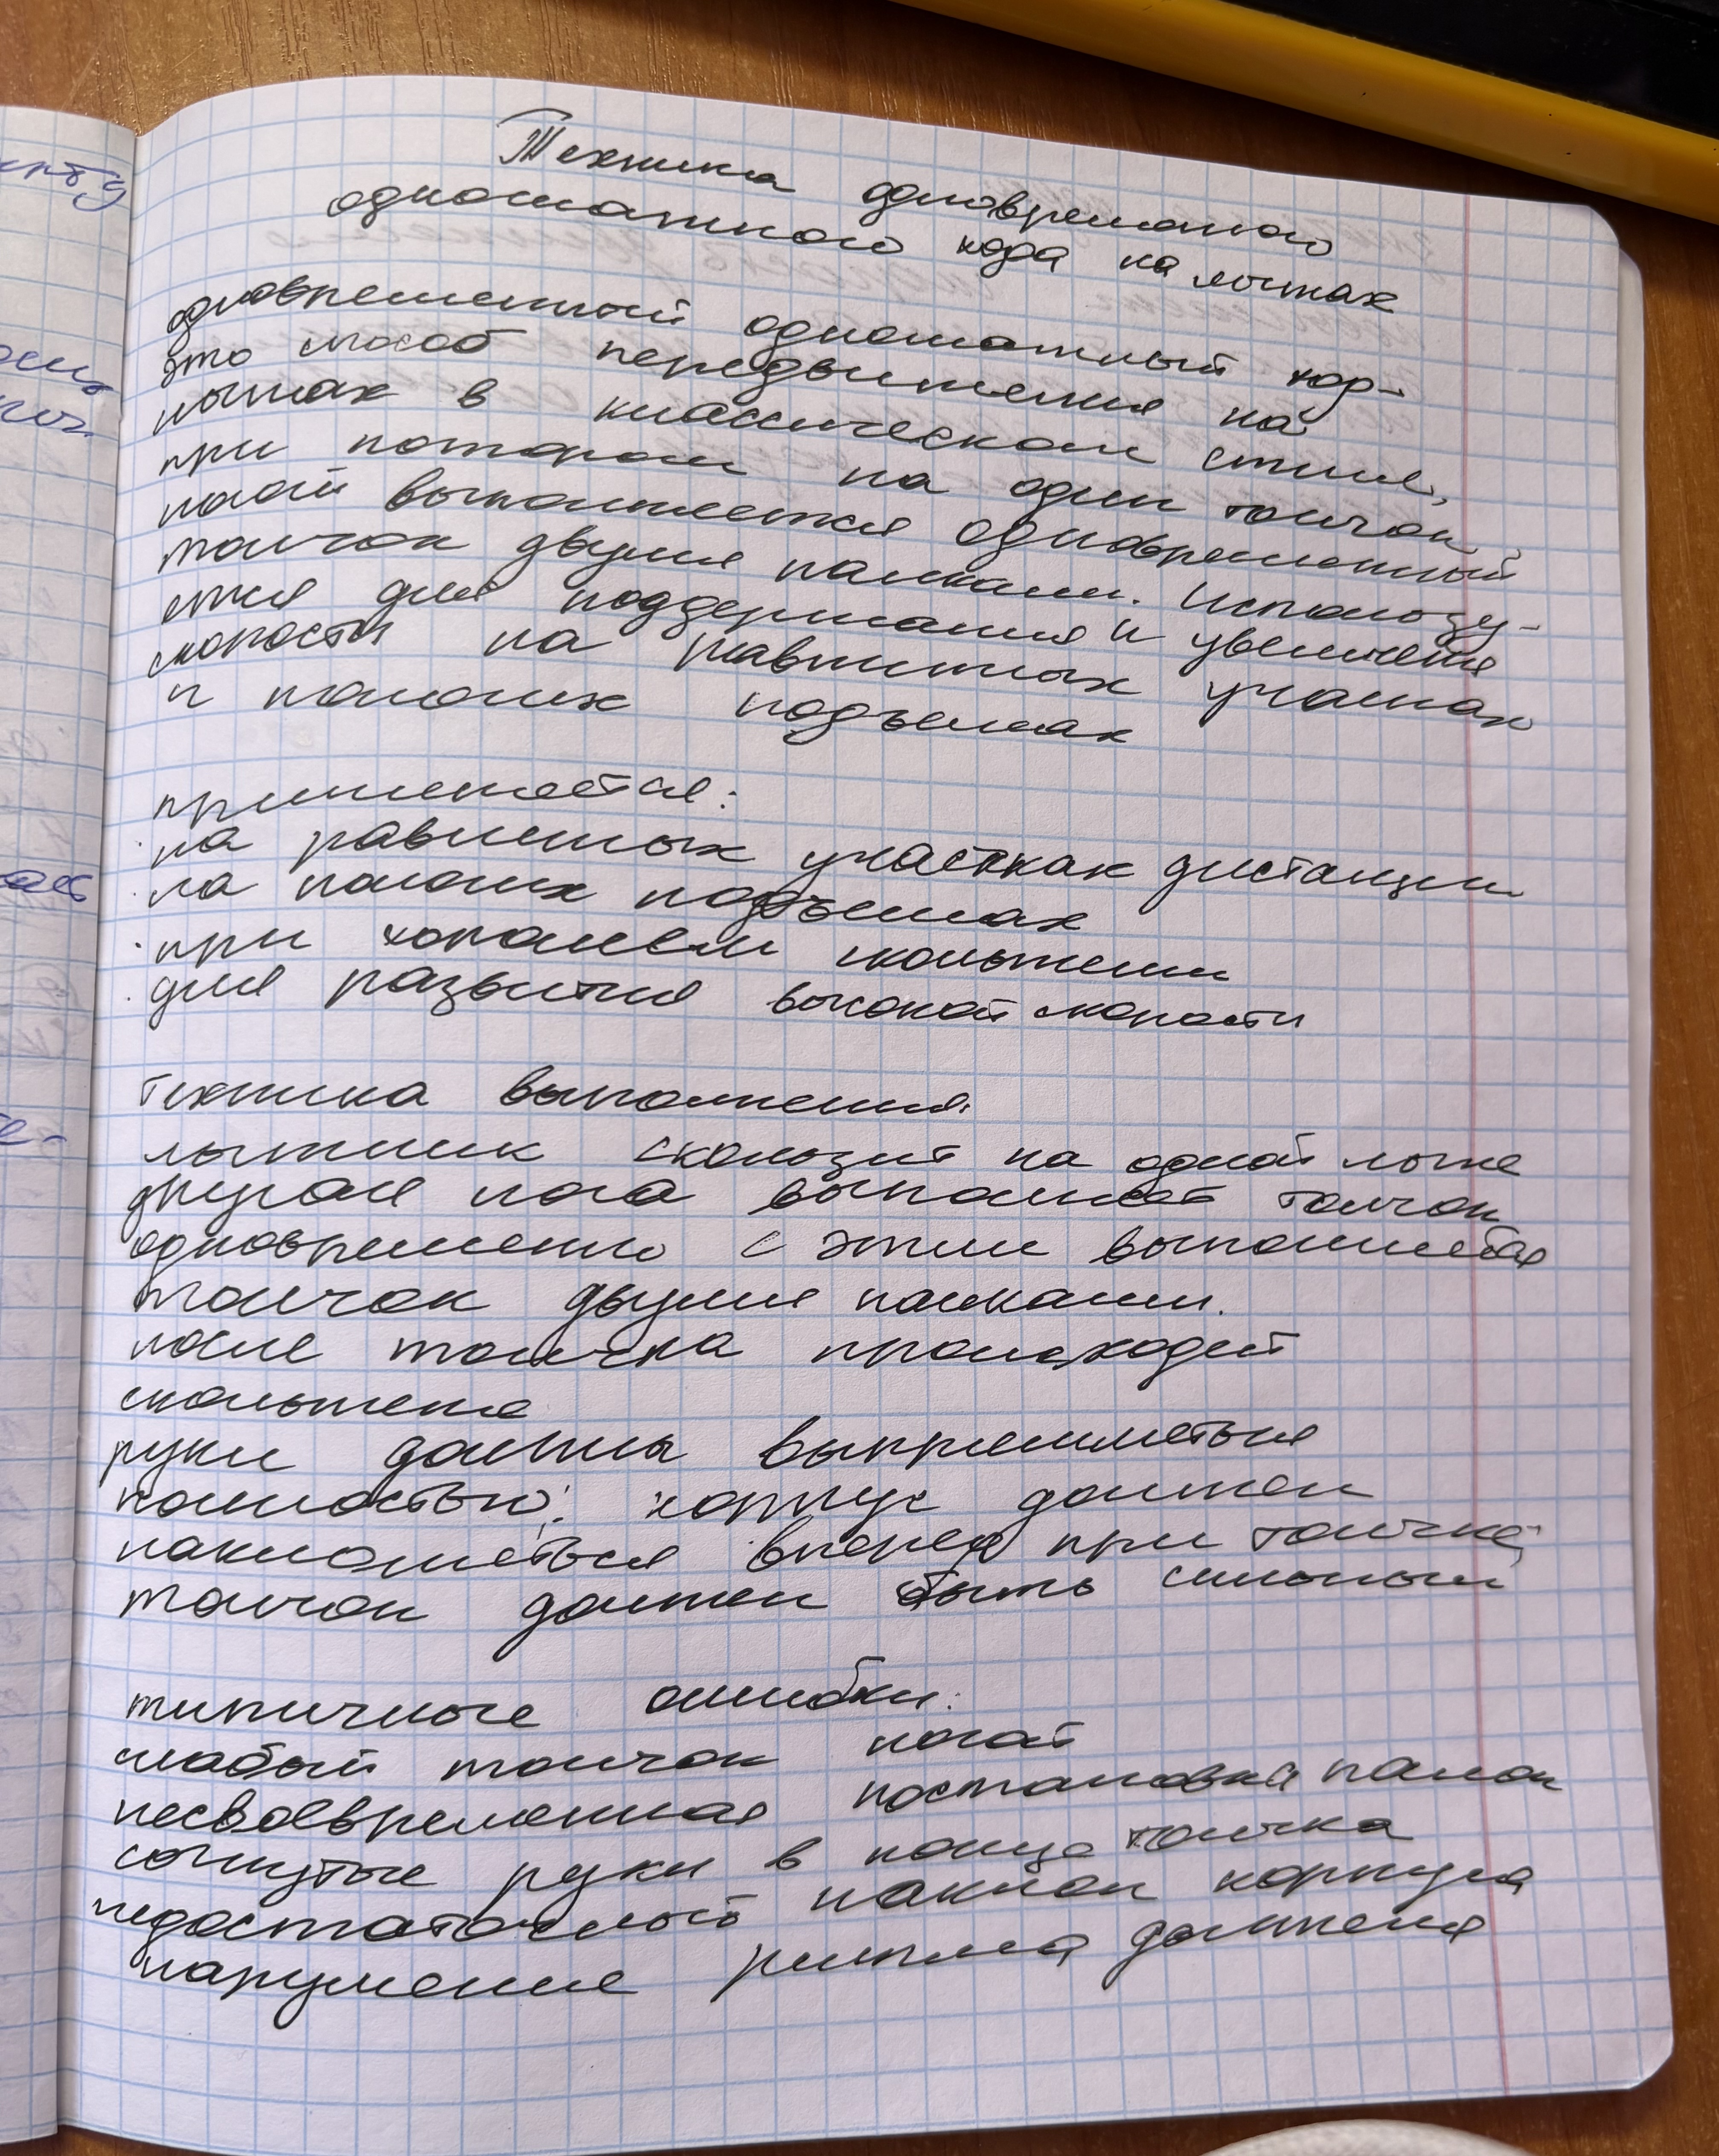 Техника одновременного
одношажного хода на лыжах
одновременный одношажный ход-
это способ передвижения на
лыжах в классическом стиле,
при котором на один толчок
ногой выполняется одновременный
толчок двумя палками. Использу-
ется для поддержания и увеличения
скорости на равнинных участках
и пологих подъемах
применяется:
· на равнинных участках дистанции
· на пологих подъемах
· при хорошем скольжении
· для развития высокой скорости
Техника выполнения
лыжник скользит на одной лыже
другая нога выполняет толчок
одновременно с этим выполняется
толчок двумя палками.
после толчка происходит
скольжение
руки должны выпрямляться
полностью; корпус должен
наклоняться вперед при толчке,
толчок должен быть сильным
типичные ошибки:
слабый толчок ногой
несвоевременная постановка палок
согнутые руки в конце толчка
недостаточный наклон корпуса
нарушение ритма движения